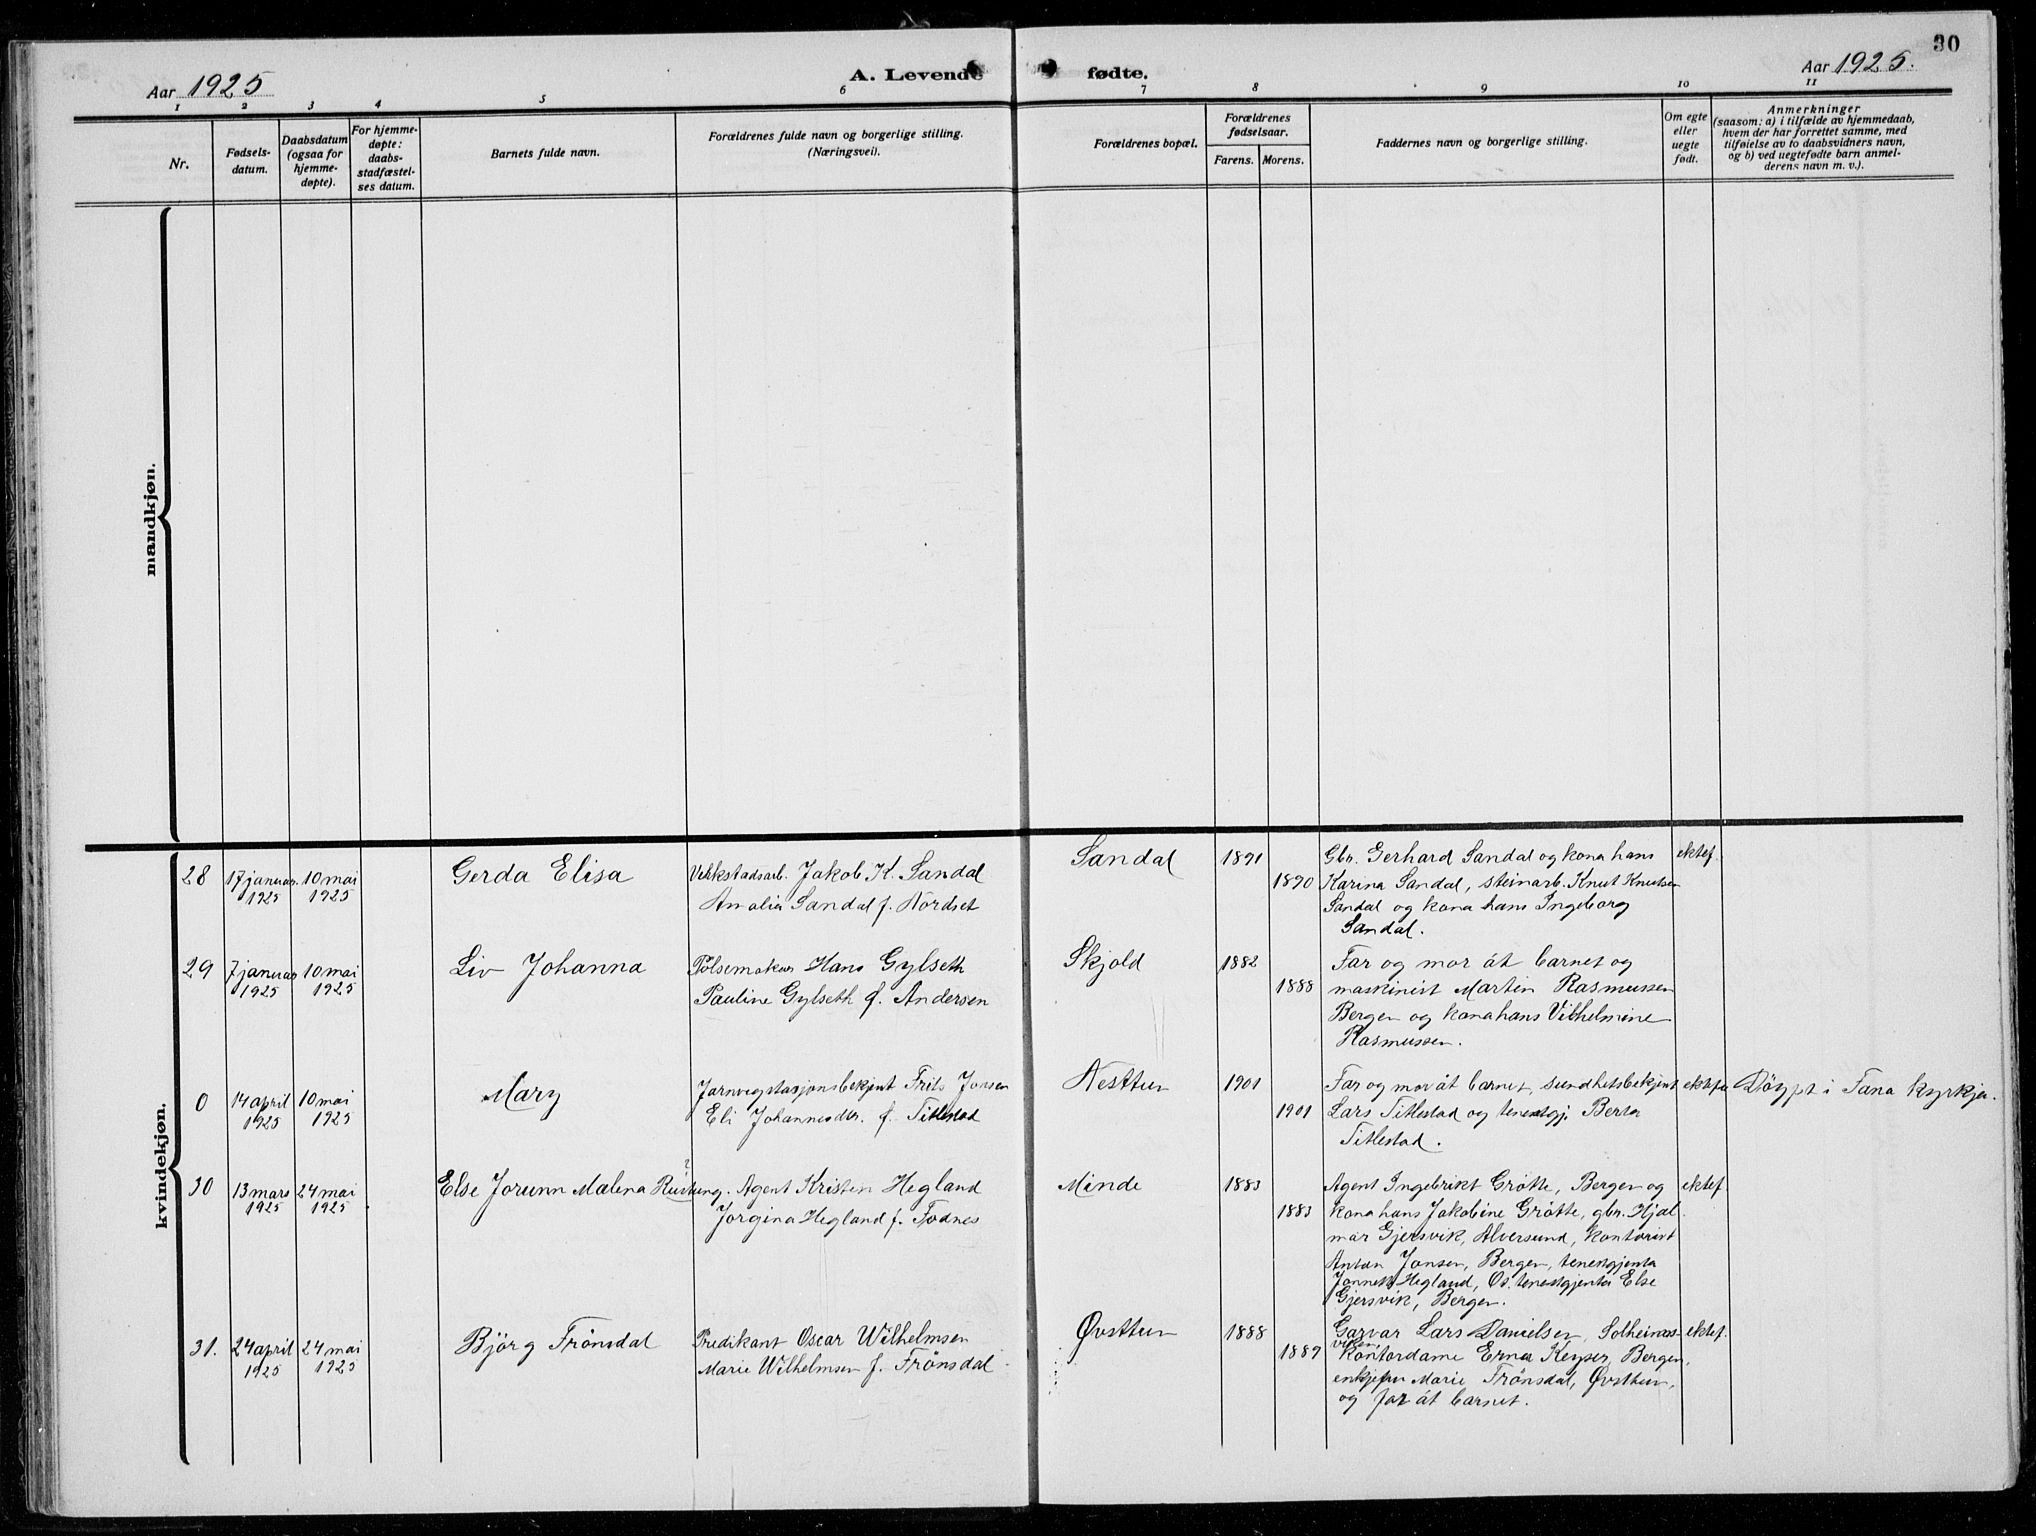 30
Aar 1925
A. Levende fødte.
Aar 1925.
1 2 3 4 5 6 7 8 9 10 11
Nr.
Fødsels-
datum.
Daabsdatum
(ogsaa for
hjemme-
døpte).
For hjemme-
døpte:
daabs-
stadfæstel-
ses datum.
Barnets fulde navn.
Forældrenes fulde navn og borgerlige stilling.
(Næringsvei).
Forældrenes bopæl.
Forældrenes
fødselsaar.
Farens. Morens.
Faddernes navn og borgerlige stilling.
Om egte
eller
uegte
født.
Anmerkninger
(saasom: a) i tilfælde av hjemmedaab,
hvem der har forrettet samme, med
tilføielse av to daabsvidners navn,
og b) ved uegtefødte barn anmel-
derens navn m. v.).
mandkjøn.
kvindekjøn.
28
17 januar
1925
10 mai
1925
Gerda Elisa
Verkstadsarb. Jakob K. Sandal
Amalia Sandal f. Nordset
Sandal
1891
1890
Gbr. Gerhard Sandal og kona hans
Karina Sandal, steinarb. Knut Knutsen
Sandal og kona hans Ingeborg
Sandal.
ektef.
29
7 januar
1925
10 mai
1925
Liv Johanna
Pölsemakar Hans Gylseth
Pauline Gylseth f. Andersen
Skjold
1882
1888
Far og mor åt barnet og
maskinist Martin Rasmussen
Bergen og kona hans Vilhelmine
Rasmussen.
0
14 april
1925
10 mai
1925
Mary
Jarnvegstasjonsbetjent Frits Jonsen
Eli Johannesdtr. f. Titlestad
Nesttun
1901
1901
Far og mor åt barnet, sundhetsbetjent
Lars Titlestad og tenestgj. Berta
Titlestad.
ektefø
Döypt i Fana kyrkja.
30
13 mars
1925
24 mai
1925
Else Jorunn Malena Rustung.
?
Agent Kristen Hegland
Jorgina Hegland f. Fodnes
Minde
1883
1883
Agent Ingebrikt Grötte, Bergen og
kona hans Jakobine Grötte, gbr. Hjal
mar Gjersvik, Alversund, kontorist
Anton Jonsen, Bergen, tenestgjenta
Jannett Hegland, Os. tenestgjenta Else
Gjersvik, Bergen.
ektef.
31.
24 april
1925
24 mai
1925
Björg Frönsdal
Predikant Oscar Wilhelmsen
Marie Wilhelmsen f. Frönsdal
Øvsttun
1888
1889
Garvar Lars Danielsen, Solheimss-
viken,
kontordame Erna Keyser, Bergen,
enkjefru Marie Frönsdal, Øvsttun,
og far åt barnet.
ektef.